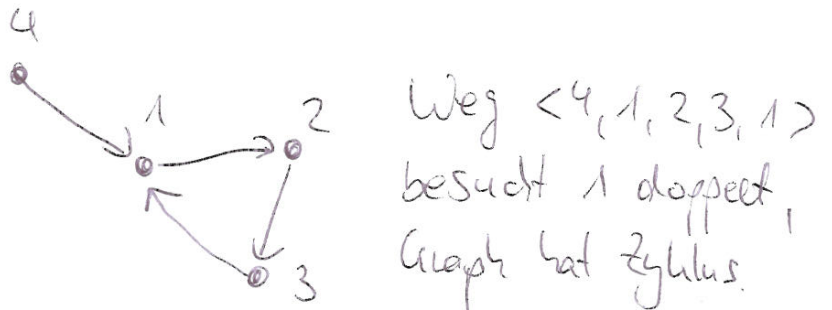 4
1
2
3
Weg <4, 1, 2, 3, 1>
besucht 1 doppelt,
Graph hat Zyklus.